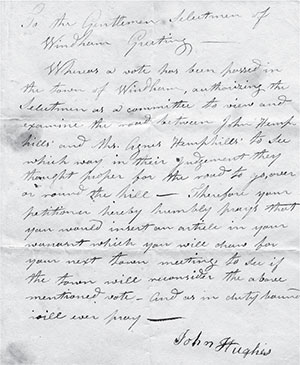 To the Gentlemen Selectmen of
Windham Greeting —
Whereas a vote has been passed in
the town of Windham, authorizing the
Selectmen as a committee to view and
examine the road between John Hemp
hills and Mrs. Agnes Hemphills' to see
which way in their judgement they
thought proper for the road to go, over
or round the hill — Therefore your
petitioner hereby humbly prays that
you would insert an article in your
warrant which you will draw for
your next town meeting to see if
the town will reconsider the above
mentioned vote — And as in duty bound
will ever pray —
John Hughes